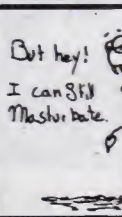 But hey!
I can still
Masturbate.